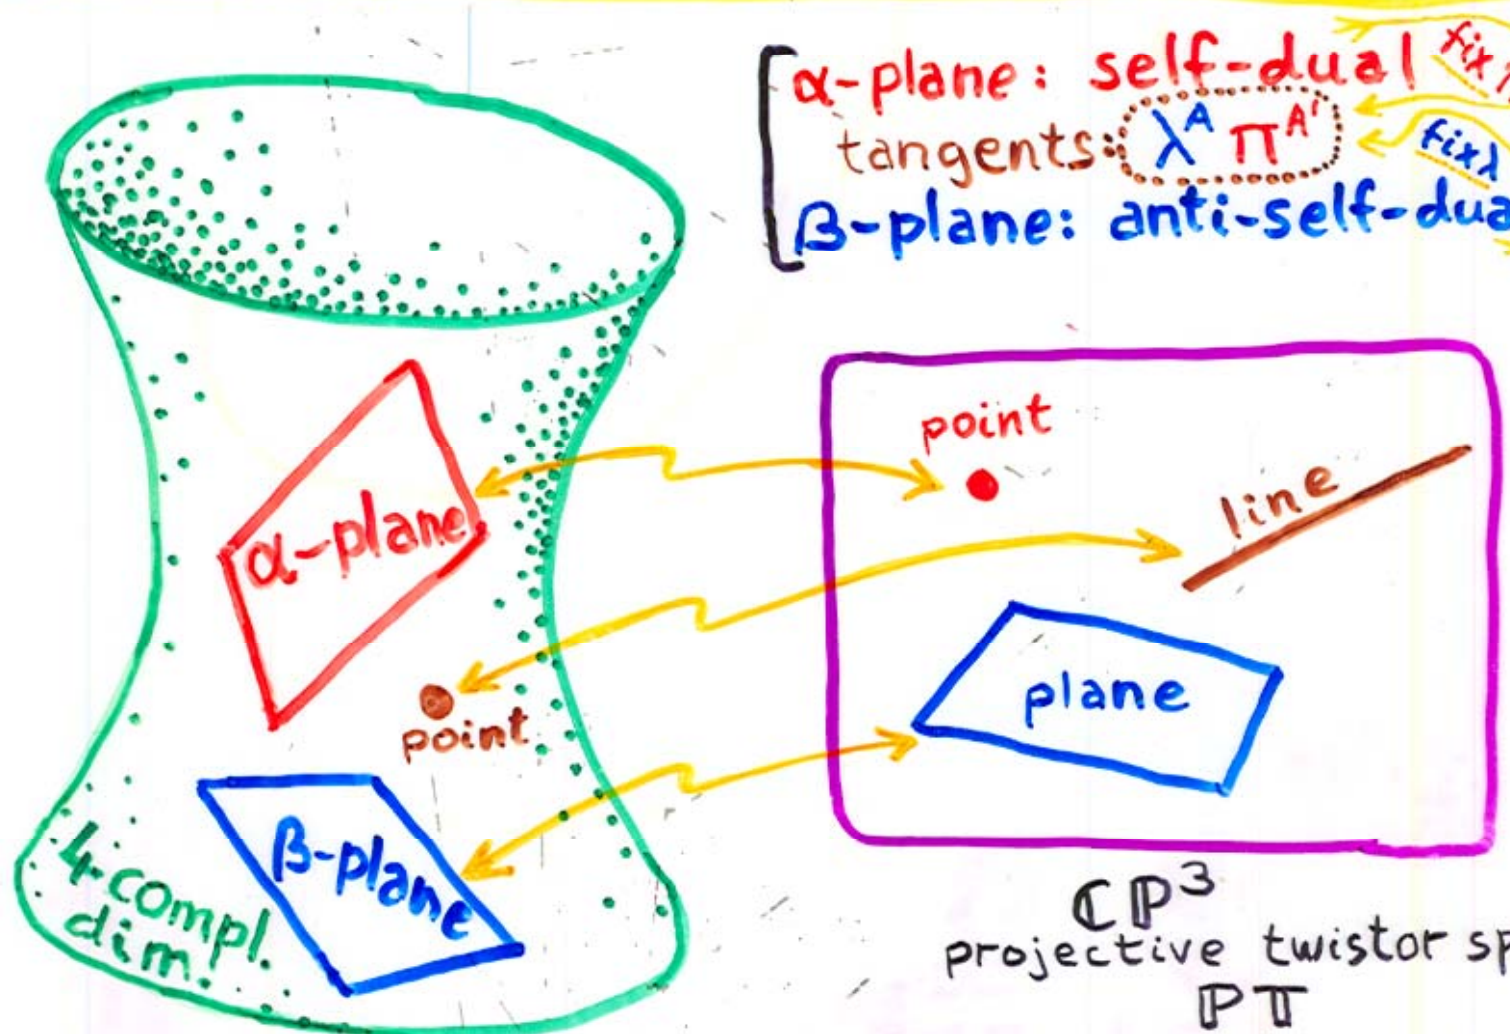 α-plane: self-dual fix
tangents: λ^A π^A'
fix λ
β-plane: anti-self-dua
α-plane
point
β-plane
4-compl.
dim.
point
line
plane
ℂℙ³
projective twistor sp
ℙ𝕋